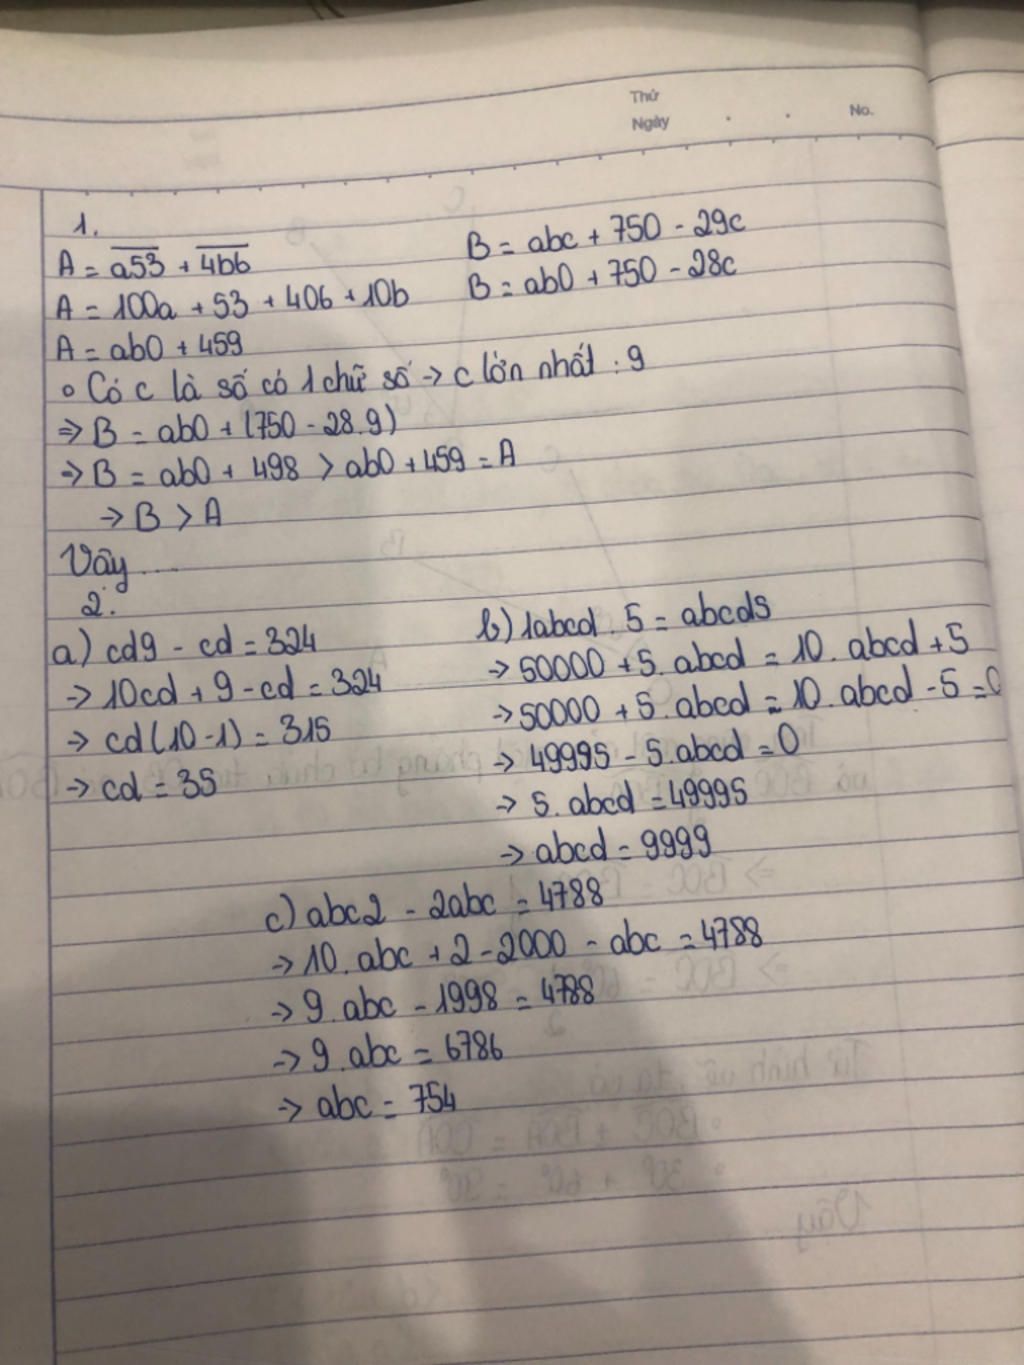 Thứ
Ngày . . No.
1.
A = a53 + 4b6
A = 100a + 53 + 406 + 10b
A = ab0 + 459
B = abc + 750 - 29c
B = ab0 + 750 - 28c
∘ Có c là số có 1 chữ số → c lớn nhất : 9
⇒ B = ab0 + (750 - 28.9)
⇒ B = ab0 + 498 > ab0 + 459 = A
→ B > A
Vậy ....
2.
a) cd9 - cd = 324
→ 10cd + 9 - cd = 324
→ cd(10-1) = 315
→ cd = 35
b) 1abcd . 5 = abcd5
→ 50000 + 5. abcd = 10. abcd + 5
→ 50000 + 5. abcd = 10. abcd - 5 = 0
→ 49995 - 5. abcd = 0
→ 5. abcd = 49995
→ abcd = 9999
c) abc2 - 2abc = 4788
→ 10. abc + 2 - 2000 - abc = 4788
→ 9. abc - 1998 = 4788
→ 9. abc = 6786
→ abc = 754